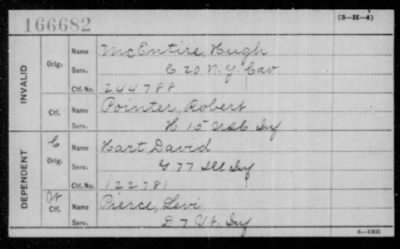 166682
(3-H-4)
INVALID
Orig.
Name McEntire, Hugh
Serv. C 20 N.Y. Cav
Ctf. No. 244788
Ctf.
Name Pointer, Robert
Serv. H 15 USC Inf
DEPENDENT
C
Orig.
Name Hart David
Serv. G 77 Ill Inf
Ctf. No. 122781
W
Ctf.
Name Pierce, Levi
Serv. D 7 Vt. Inf